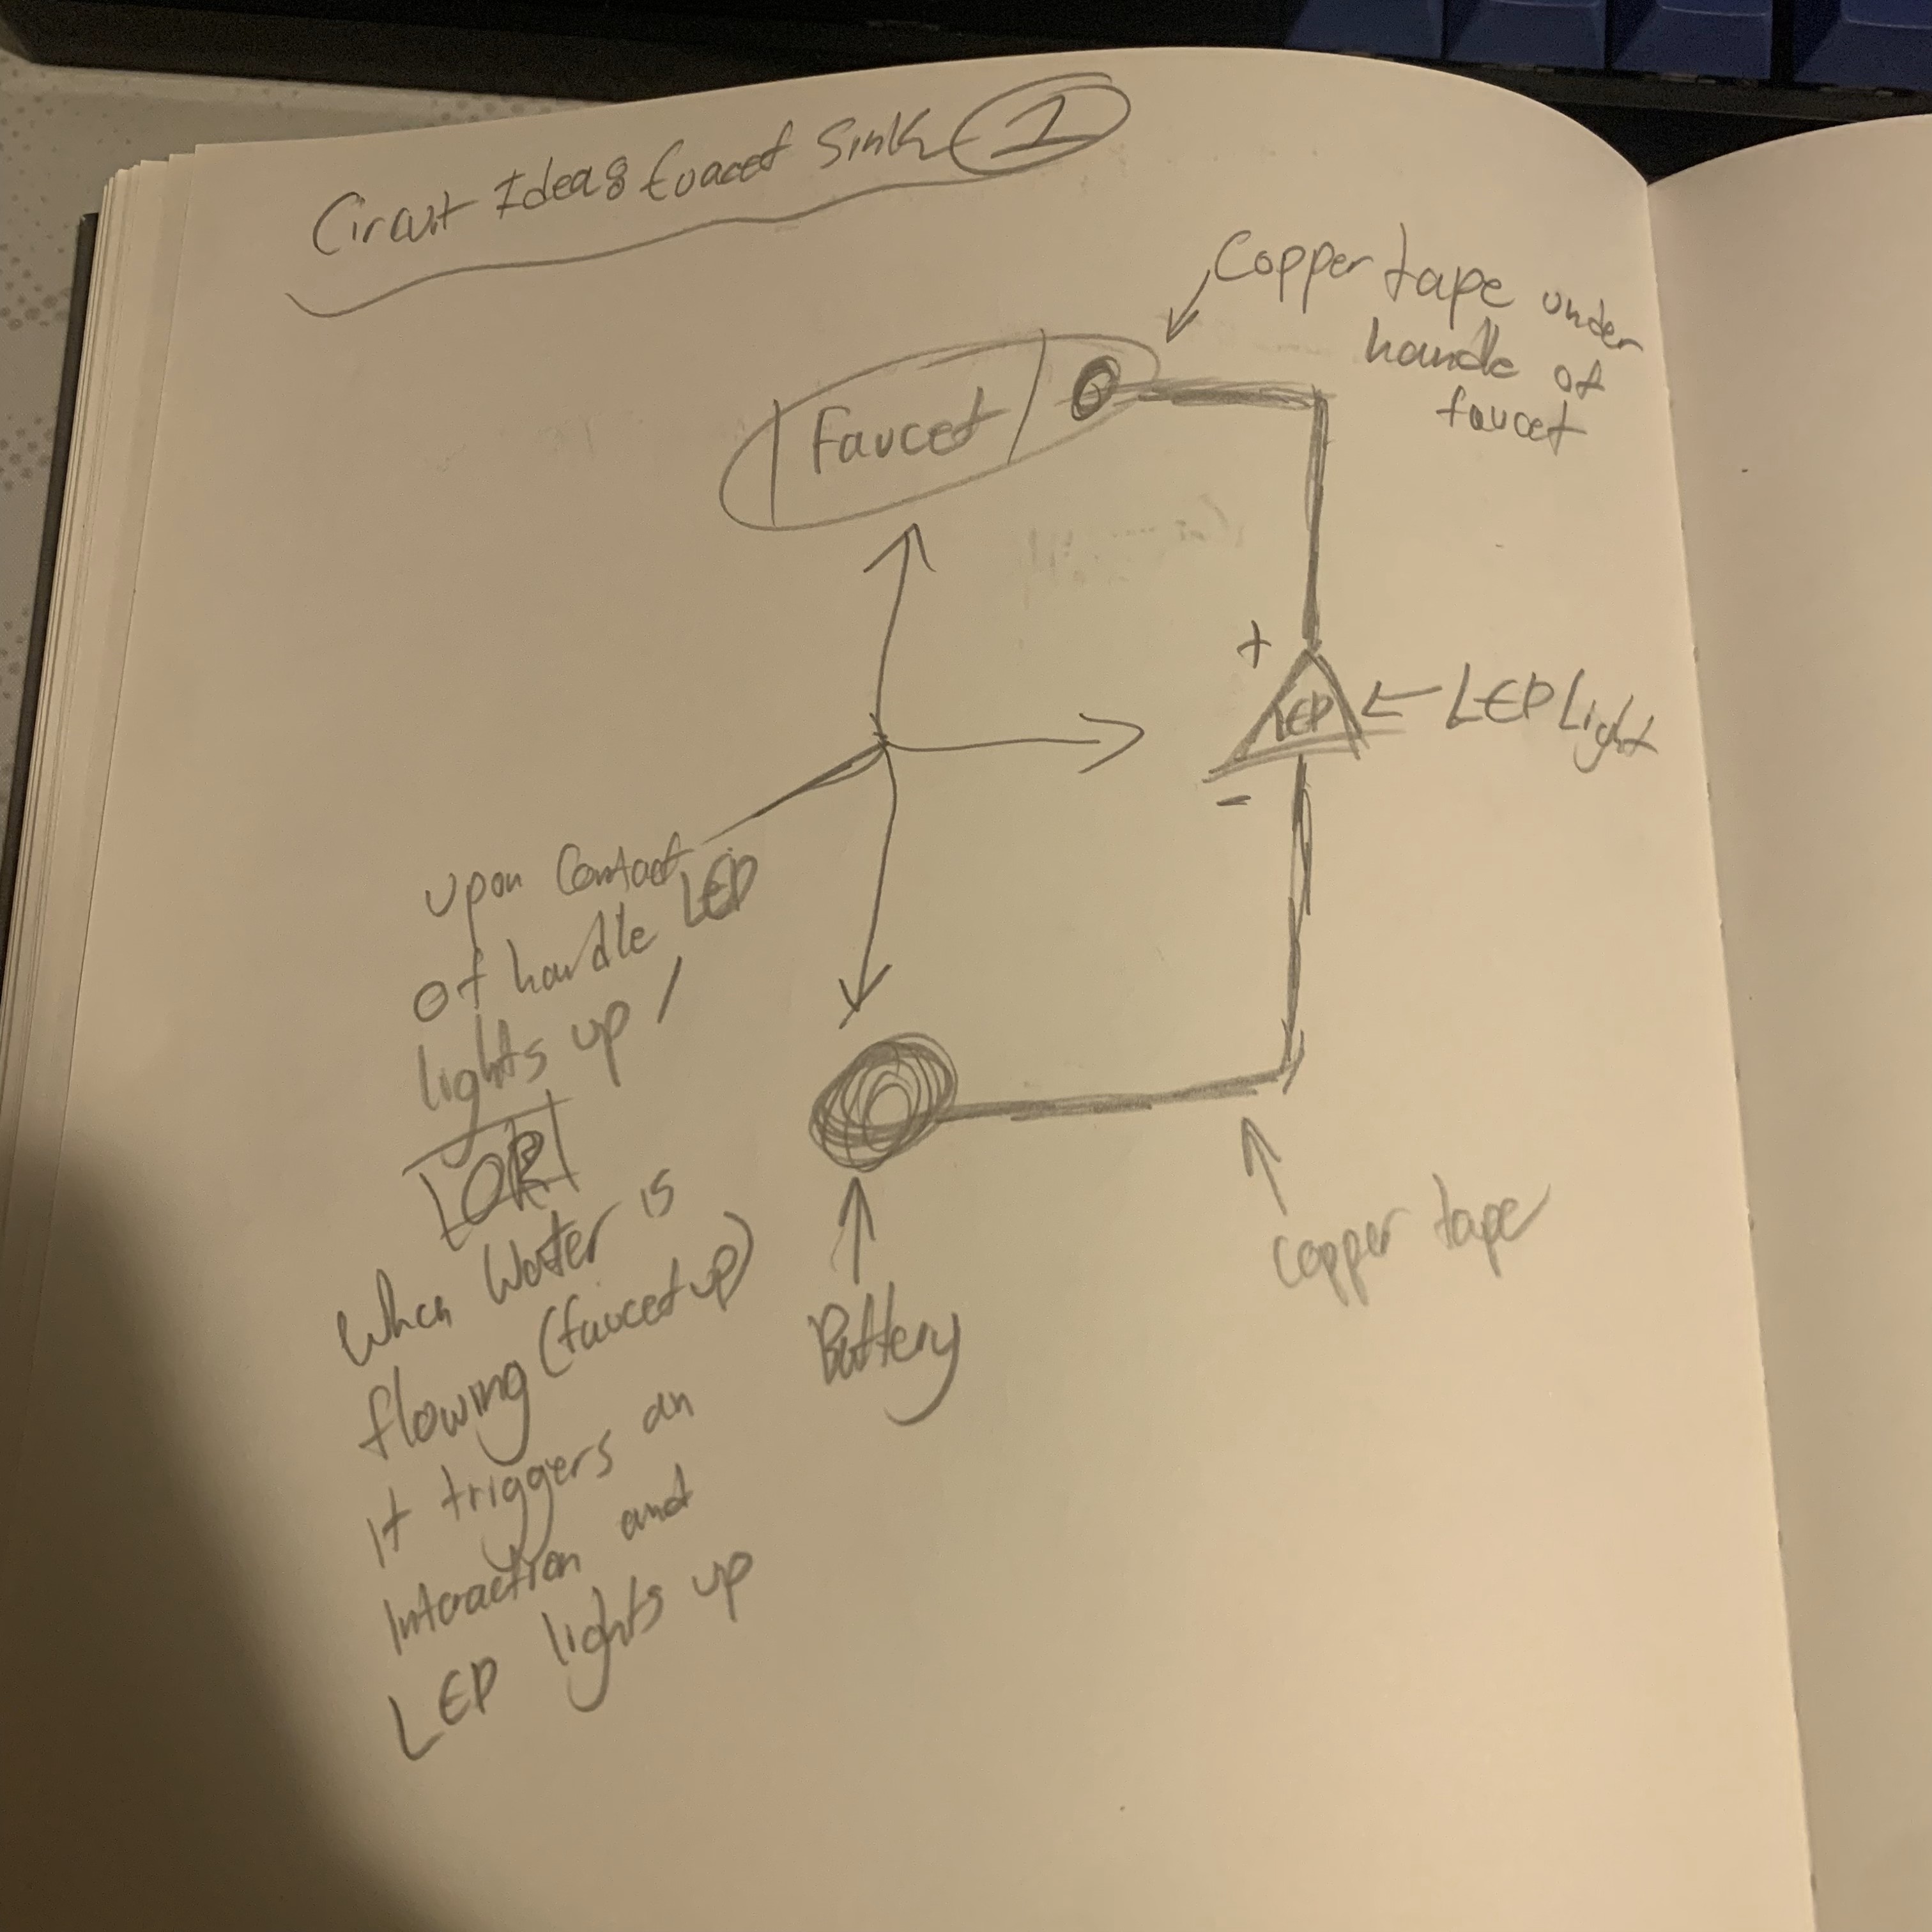 Circuit Idea 8 fuacet Sink 1
Copper tape under
handle of
faucet
Faucet
+
LED
LED Light
-
upon Contact
of handle LED
lights up /
OR
When Water is
flowing (faucet up)
it triggers an
Interaction and
LED lights up
Battery
copper tape